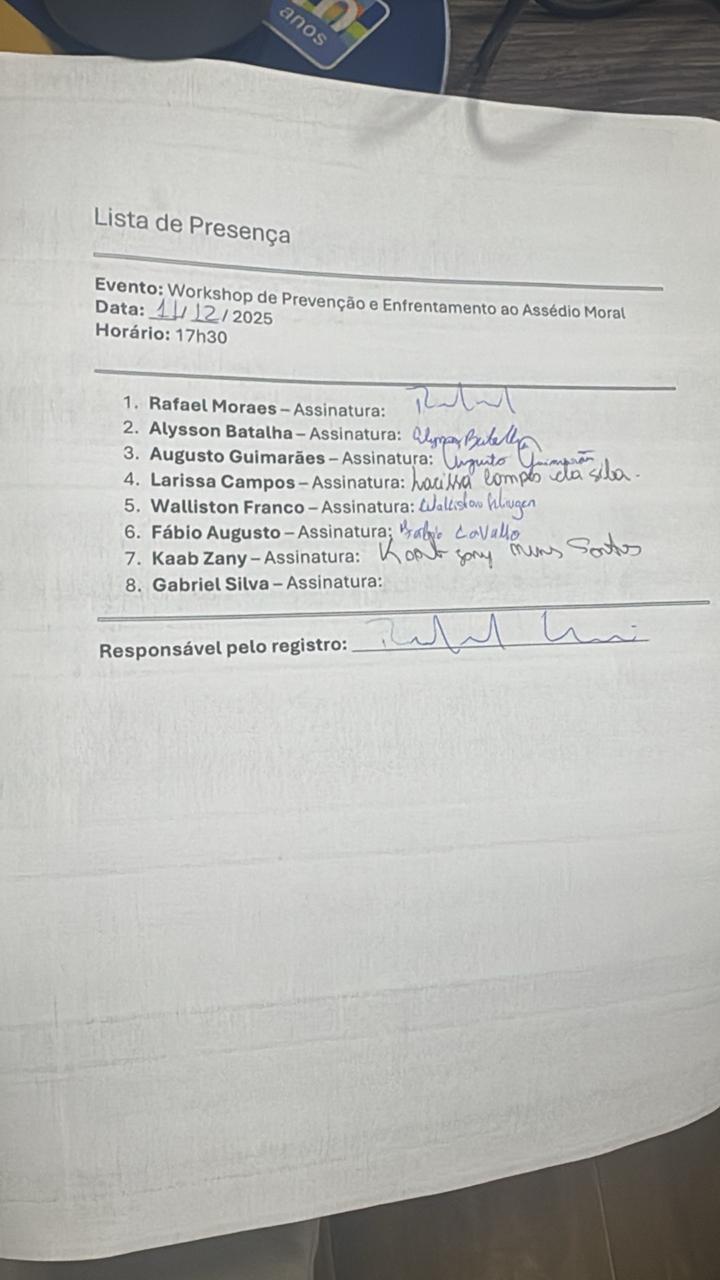 anos
Lista de Presença
Evento: Workshop de Prevenção e Enfrentamento ao Assédio Moral
Data: 11/12/2025
Horário: 17h30
1. Rafael Moraes – Assinatura:
2. Alysson Batalha – Assinatura: Alysson Batalha
3. Augusto Guimarães – Assinatura: Augusto Guimarães
4. Larissa Campos – Assinatura: Larissa Campos da Silva.
5. Walliston Franco – Assinatura: Walliston
6. Fábio Augusto – Assinatura: Fabio
7. Kaab Zany – Assinatura: Santos
8. Gabriel Silva – Assinatura:
Responsável pelo registro: